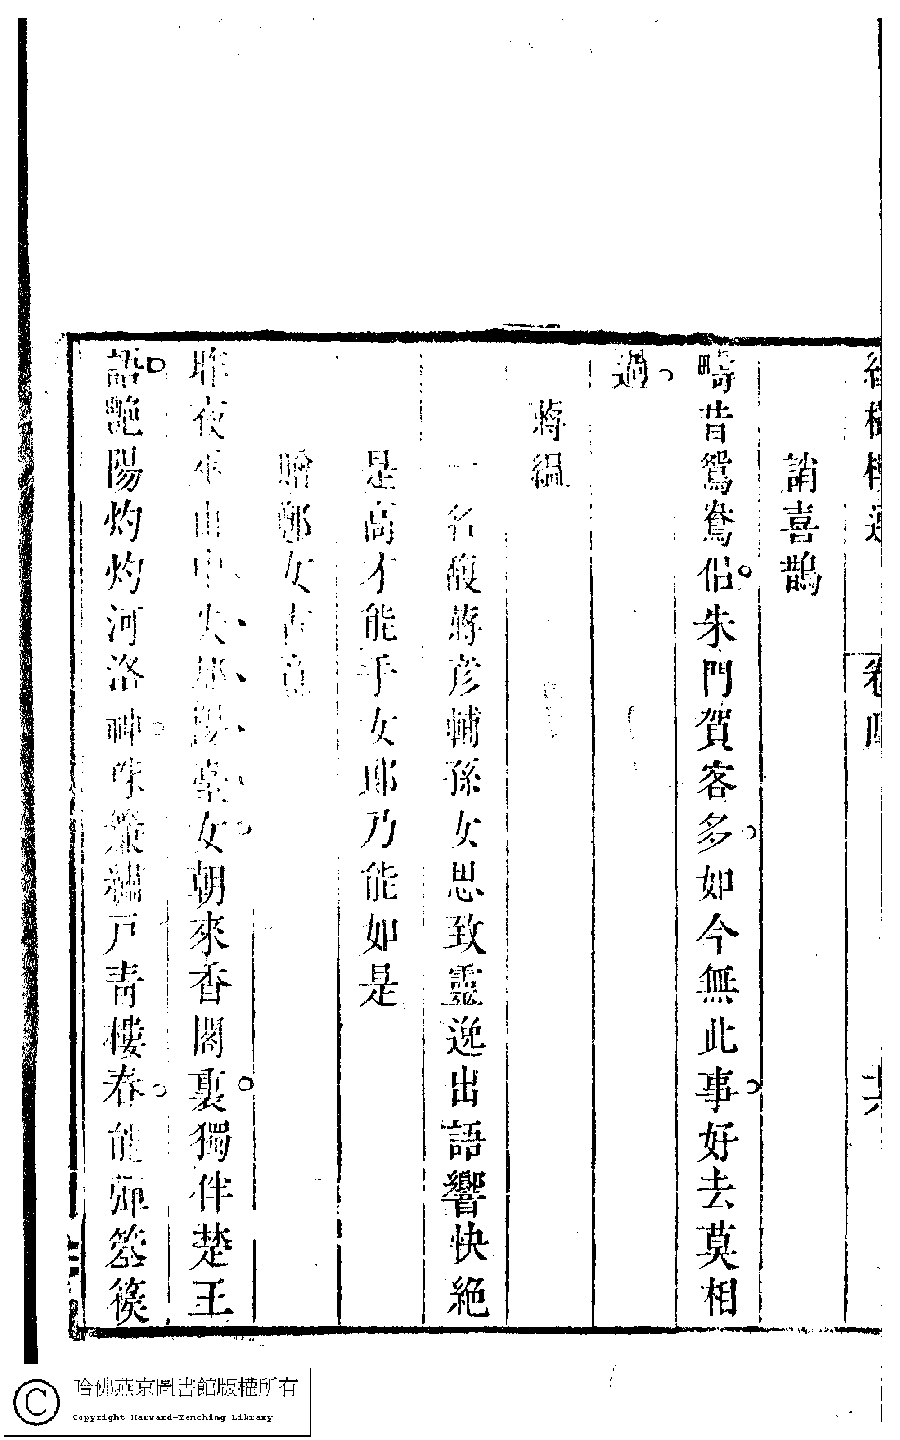 紅樹樓選 卷四 十六
誚喜鵲
疇昔鴛鴦侶。朱門賀客多。如今無此事。好去莫相
過。
蔣緼
一名馥蔣彦輔孫女思致靈逸出語響快絶
是高才能手女郎乃能如是
贈鄭女古意
昨夜巫山中、失、却、陽、臺、女。朝來香閣裏。獨伴楚王
語。艷陽灼灼河洛神。珠簾繡戶青樓春。能彈箜篌
哈佛燕京圖書館版權所有
Copyright Harvard-Yenching Library